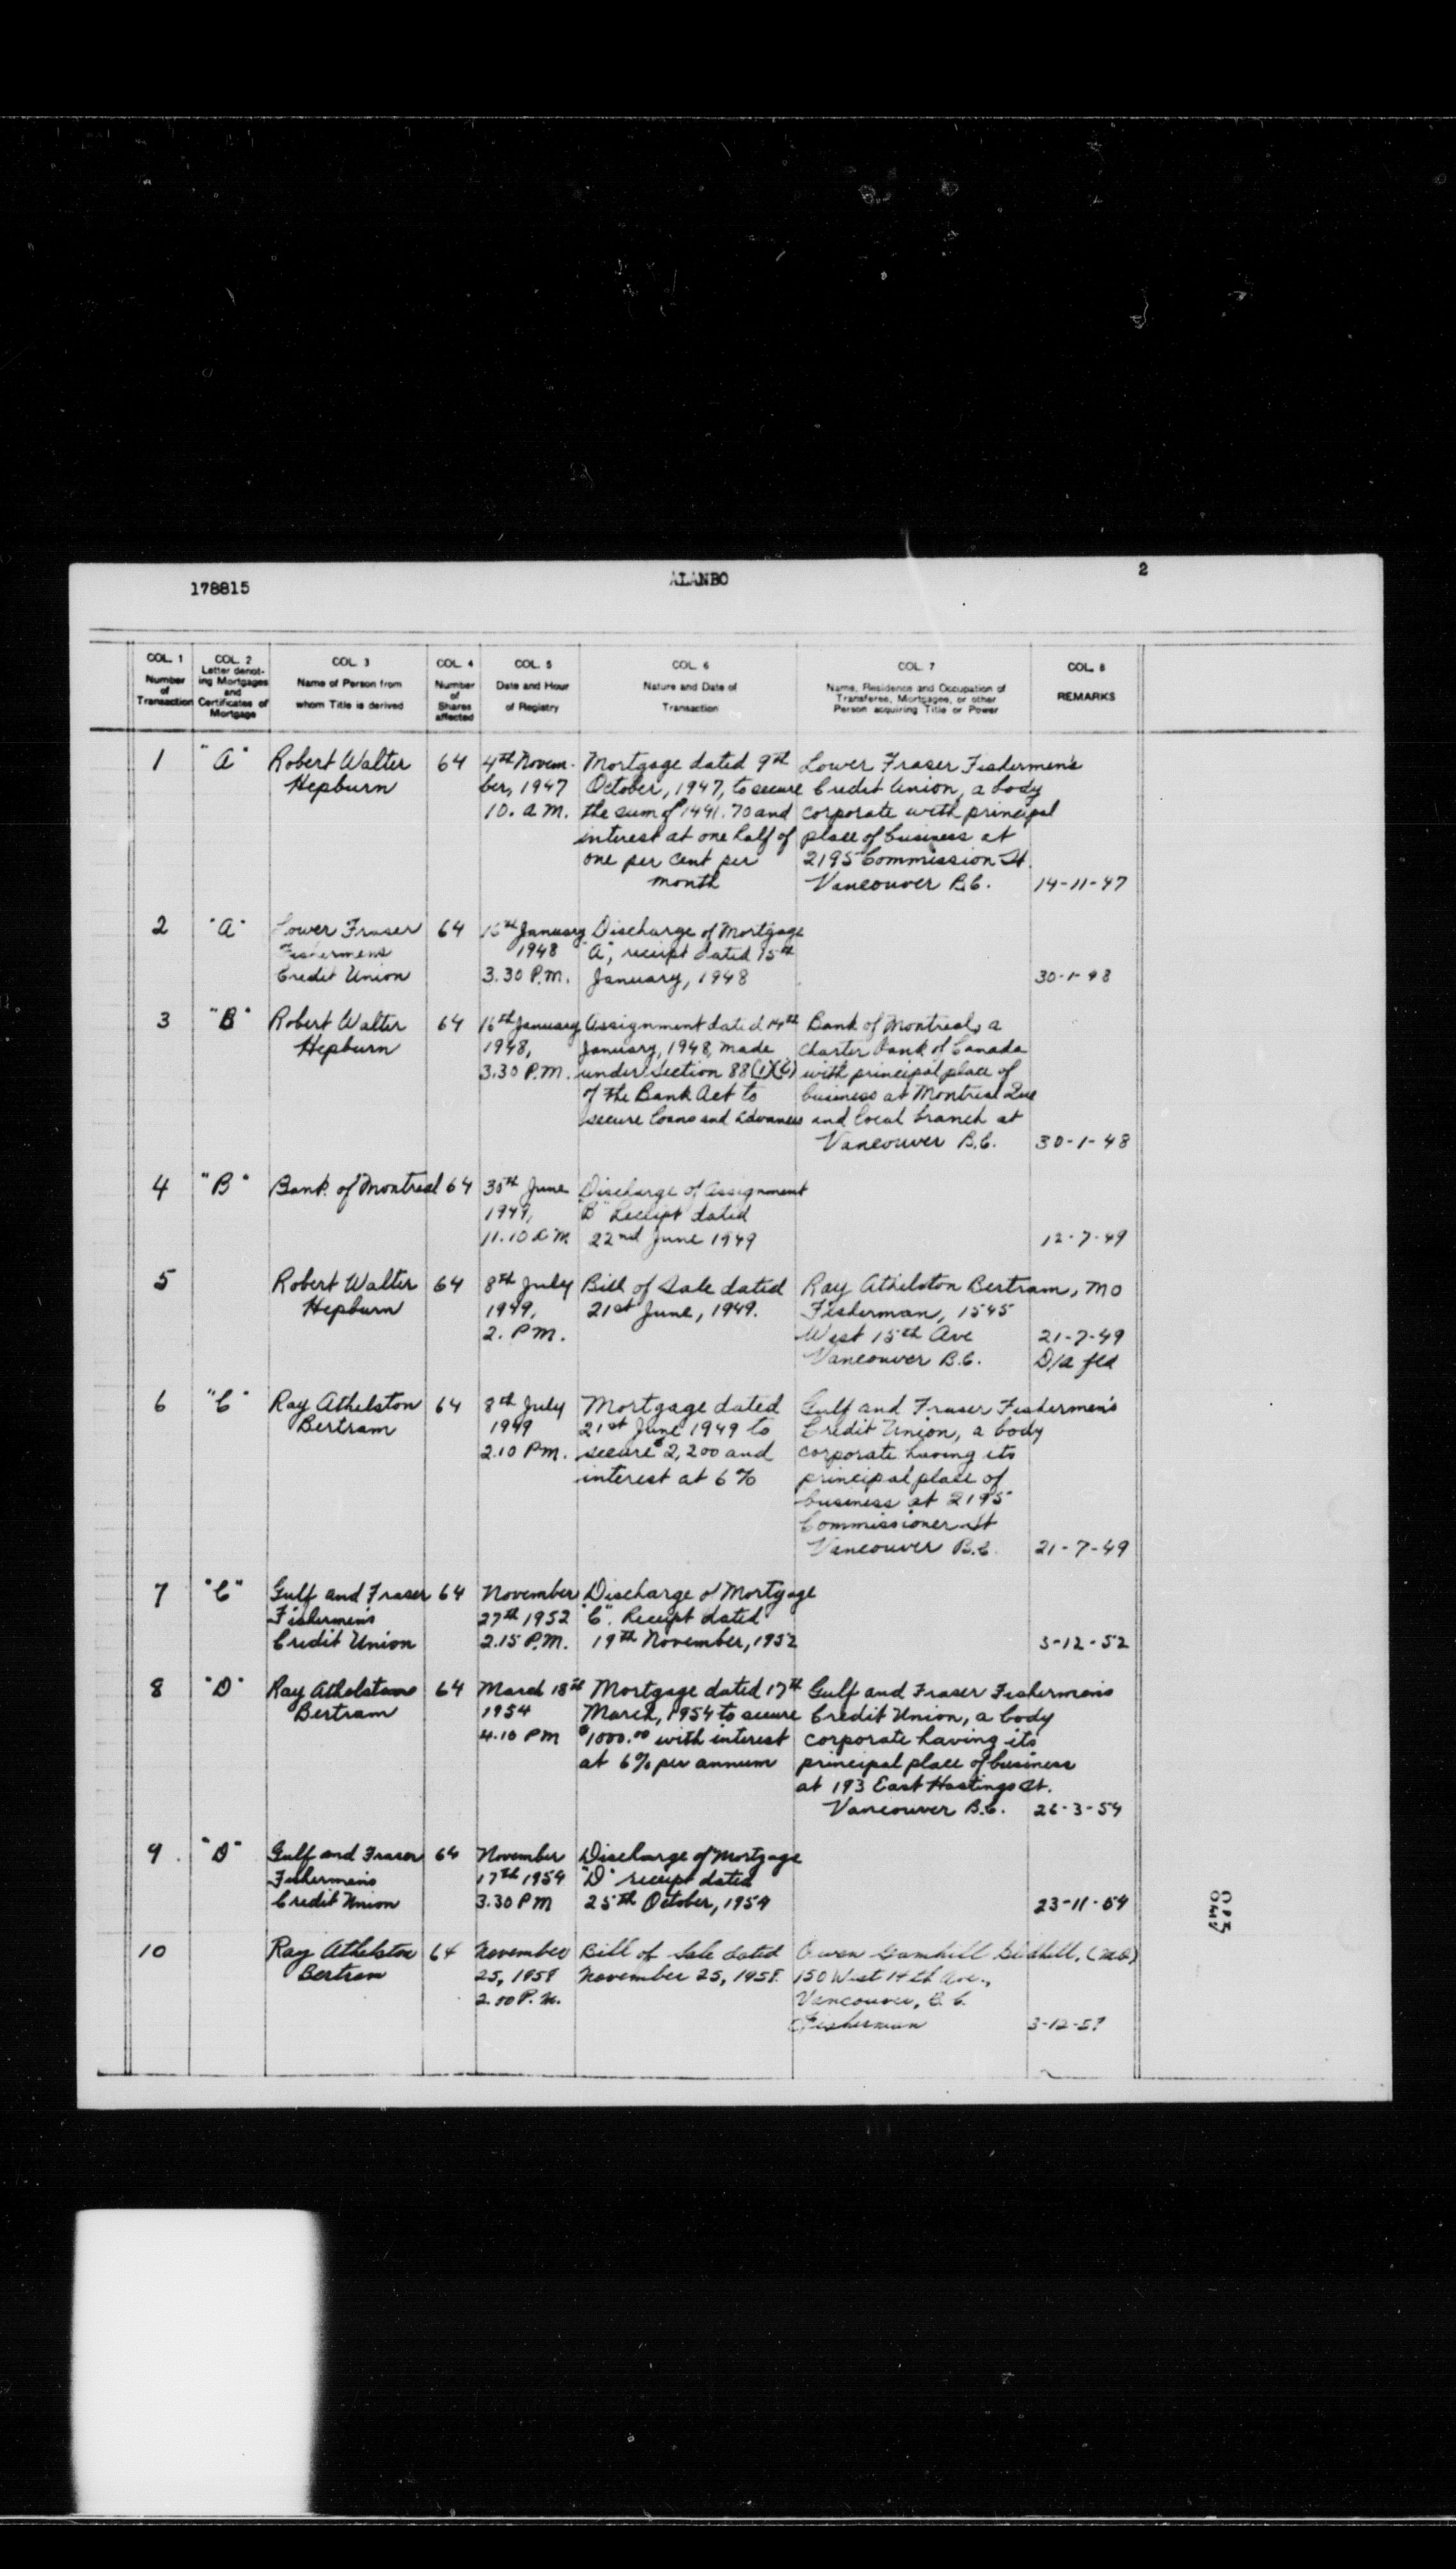 178815
ALANBO
2
COL. 1
Number
of
Transaction
COL. 2
Letter denot-
ing Mortgages
and
Certificates of
Mortgage
COL. 3
Name of Person from
whom Title is derived
COL. 4
Number
of
Shares
affected
COL. 5
Date and Hour
of Registry
COL. 6
Nature and Date of
Transaction
COL. 7
Name, Residence and Occupation of
Transferee, Mortgagee, or other
Person acquiring Title or Power
COL. 8
REMARKS
1
"A"
Robert Walter
Hepburn
64
4th Novem-
ber, 1947
10. A.M.
Mortgage dated 9th
October, 1947, to secure
the sum of $1491.70 and
interest at one half of
one per cent per
month
Lower Fraser Fishermen's
Credit Union, a body
corporate with principal
place of business at
2195 Commission St.
Vancouver B.C.
14-11-47
2
"A"
Lower Fraser
Fishermens
Credit Union
64
16th January
1948
3.30 P.M.
Discharge of Mortgage
"A", receipt dated 15th
January, 1948
30-1-48
3
"B"
Robert Walter
Hepburn
64
16th January
1948,
3.30 P.M.
Assignment dated 14th
January, 1948, made
under Section 88
of The Bank Act to
secure loans and advances
Bank of Montreal, a
Charter Bank of Canada
with principal place of
business at Montreal Que
and local branch at
Vancouver B.C.
30-1-48
4
"B"
Bank of Montreal
64
30th June
1949,
11.10 A.M.
Discharge of Assignment
"B" Receipt dated
22nd June 1949
12-7-49
5
Robert Walter
Hepburn
64
8th July
1949,
2. P.M.
Bill of Sale dated
21st June, 1949.
Ray Athelston Bertram, MO
Fisherman, 1545
West 15th Ave
Vancouver B.C.
21-7-49
D/a fld
6
"C"
Ray Athelston
Bertram
64
8th July
1949
2.10 P.M.
Mortgage dated
21st June 1949 to
secure $2,200 and
interest at 6%
Gulf and Fraser Fishermen's
Credit Union, a body
corporate having its
principal place of
business at 2195
Commissioner St
Vancouver B.C.
21-7-49
7
"C"
Gulf and Fraser
Fishermen's
Credit Union
64
November
27th 1952
2.15 P.M.
Discharge of Mortgage
"C". Receipt dated
19th November, 1952
3-12-52
8
"D"
Ray Athelston
Bertram
64
March 18th
1954
4.10 PM
Mortgage dated 17th
March, 1954 to secure
$1000.00 with interest
at 6% per annum
Gulf and Fraser Fishermen's
Credit Union, a body
corporate having its
principal place of business
at 193 East Hastings St.
Vancouver B.C.
26-3-54
9
"D"
Gulf and Fraser
Fishermen's
Credit Union
64
November
17th 1954
3.30 PM
Discharge of Mortgage
"D" receipt dated
25th October, 1954
23-11-54
10
Ray Athelston
Bertram
64
November
25, 1958
2.00 P.M.
Bill of Sale dated
November 25, 1958.
Owen (MO)
150 West 14th Ave.,
Vancouver, B.C.
Fisherman